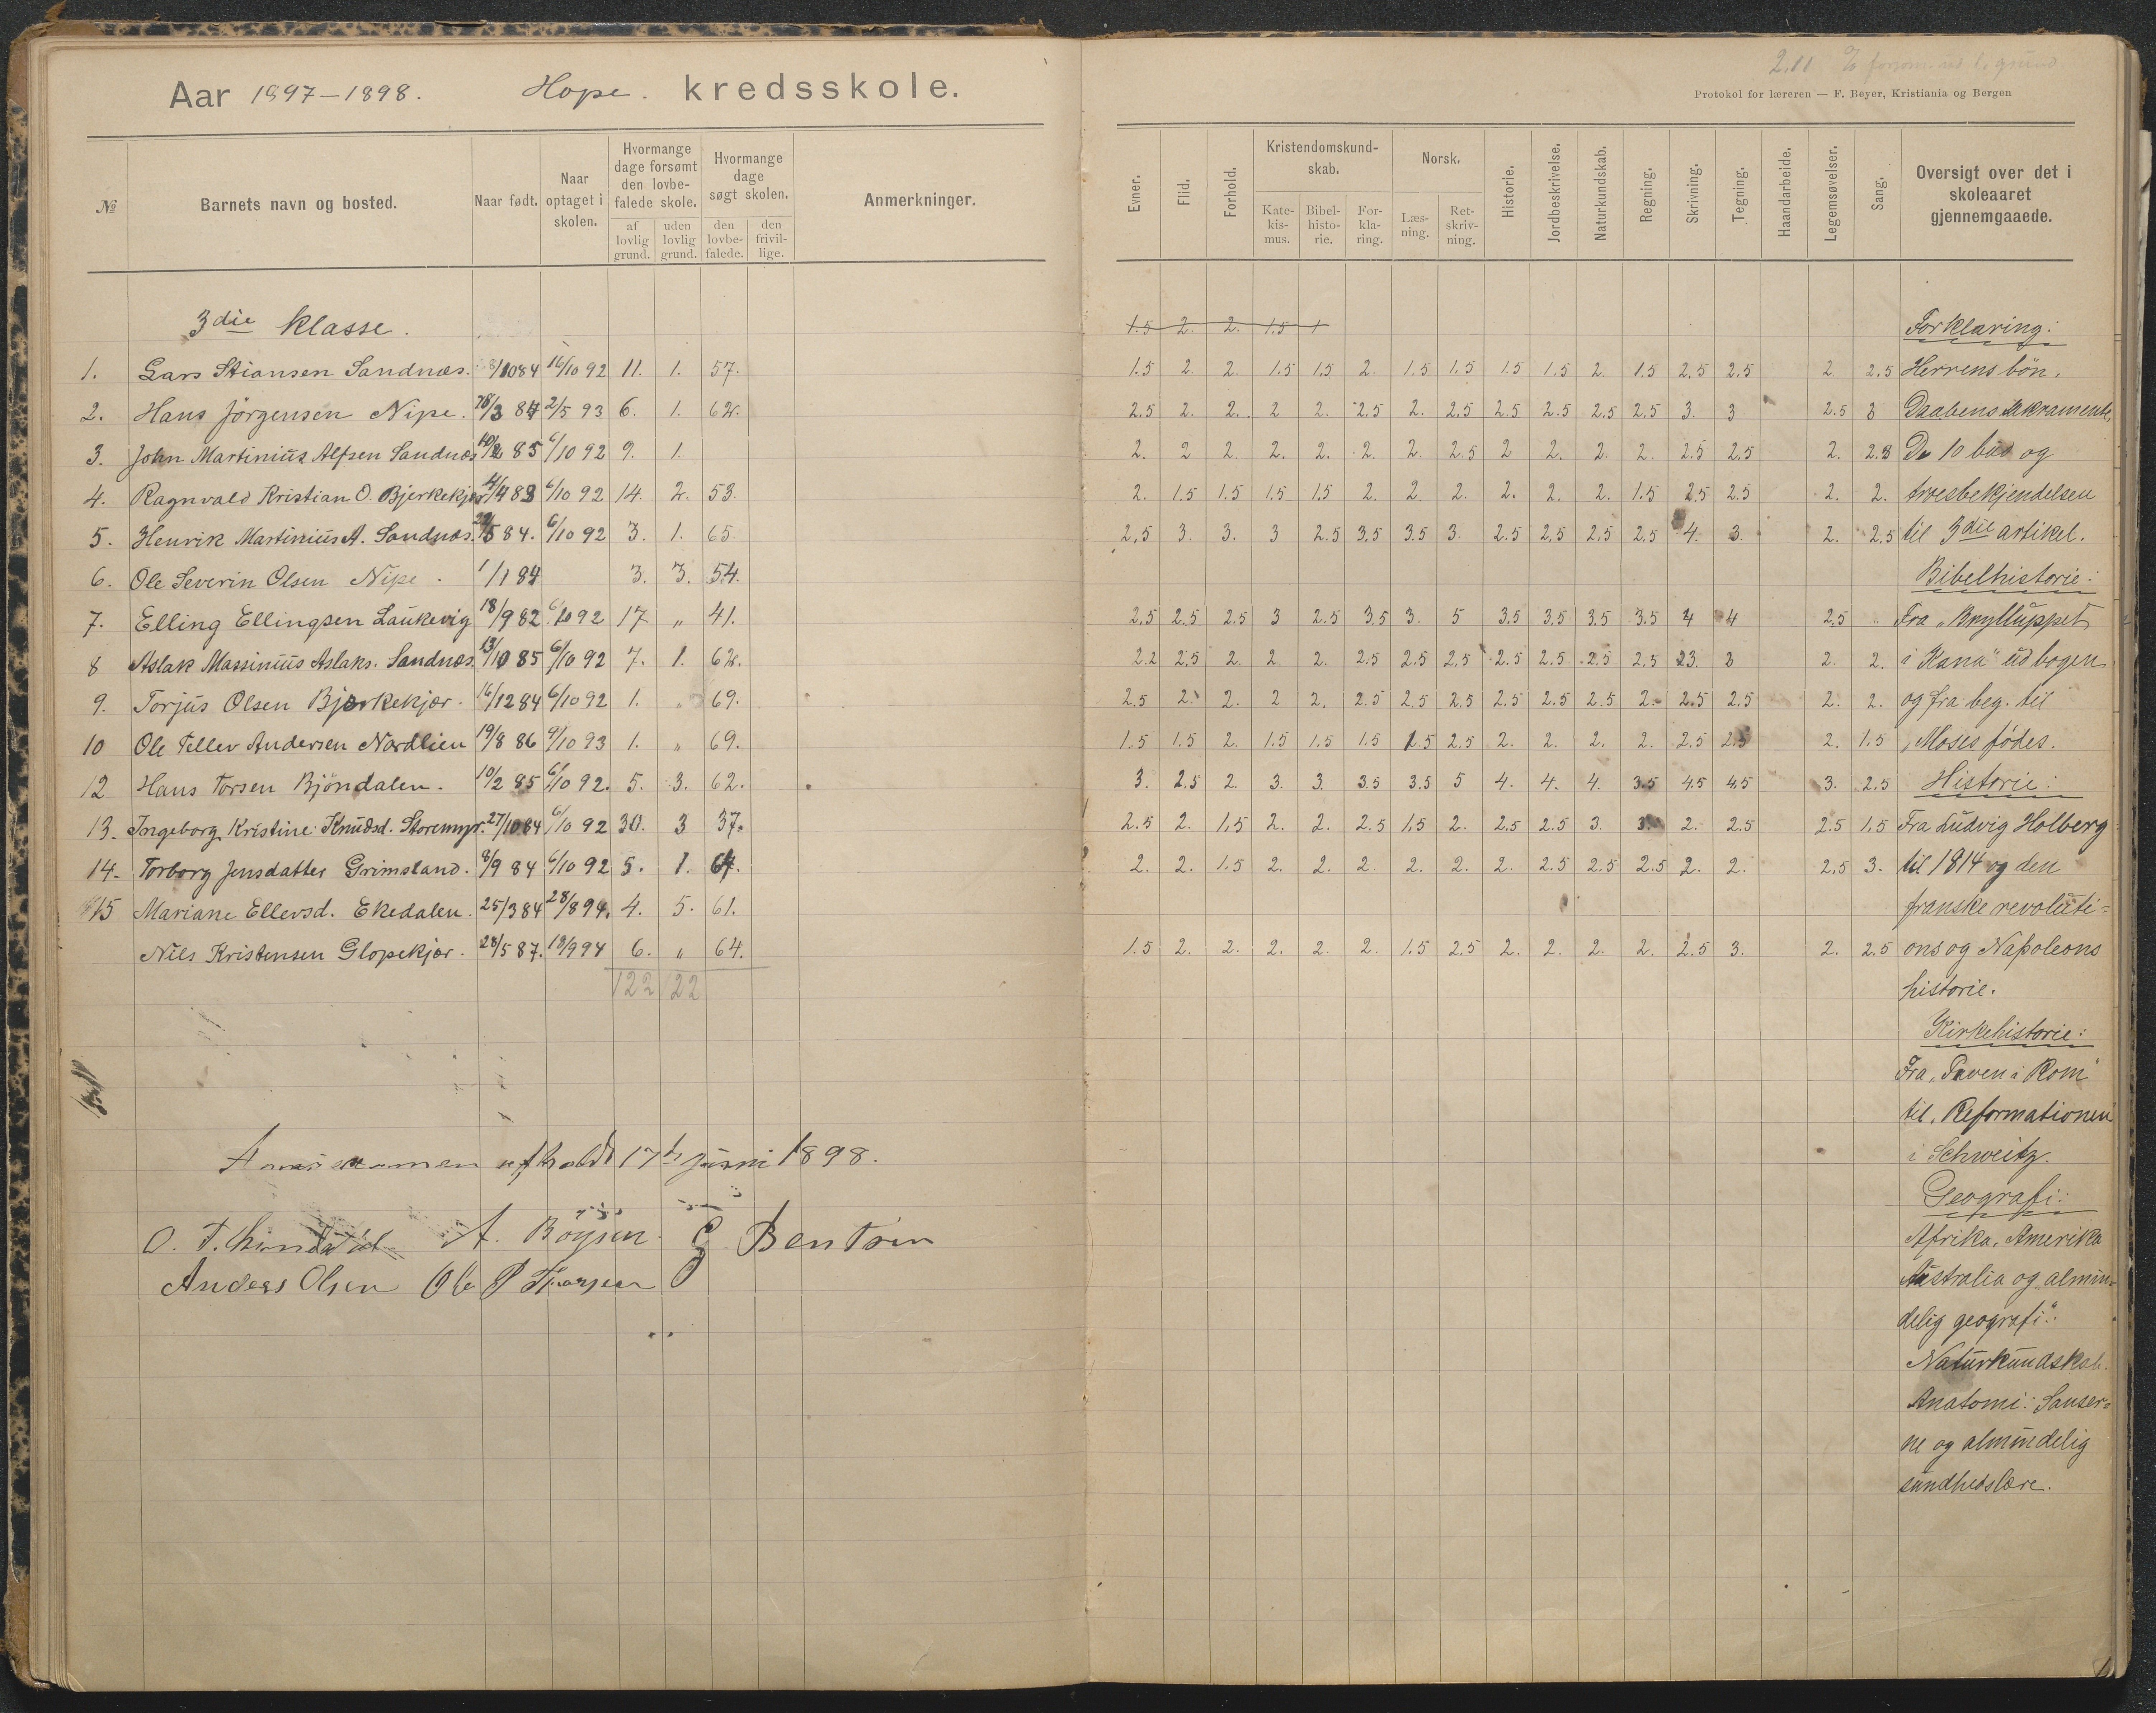 Aar 1897-1898. Hope. kredsskole.
№ Barnets navn og bosted. Naar født. Naar optaget i skolen. Hvormange dage forsømt den lovbefalede skole. af lovlig grund. uden lovlig grund. Hvormange dage søgt skolen. den lovbefalede. den frivillige. Anmerkninger.
3die klasse.
1. Lars Stiansen Sandnæs. 8/10 84 16/10 92 11. 1. 57.
2. Hans Jörgensen Nipe. 28/3 84 2/5 93 6. 1. 62.
3. John Martinius Alfsen Sandnæs 85 6/10 92 9. 1.
4. Ragnvald Kristian O. Bjerkekjær 83 6/10 92 14. 2. 53.
5. Henrik Martinius A. Sandnæs. 84. 6/10 92 3. 1. 65.
6. Ole Severin Olsen Nipe. 1/1 84 3. 3. 54.
7. Elling Ellingsen Laukevig 18/9 82 6/10 92 17 " 41.
8 Aslak Massinius Aslaks. Sandnæs. 13/10 85 6/10 92 7. 1. 62.
9. Torjus Olsen Bjerkekjær. 16/12 84 6/10 92 1. " 69.
10 Ole Tellev Andersen Nordlien 19/8 86 9/10 93 1. " 69.
12 Hans Torsen Bjöndalen. 10/2 85 6/10 92. 5. 3. 62.
13. Ingeborg Kristine Knudsd. Storemyr. 27/10 84 6/10 92 30. 3 37.
14. Torborg Jensdatter Grimsland. 8/9 84 6/10 92 5. 1. 64.
15 Mariane Ellevsd. Ekedalen. 25/3 84 28/8 94. 4. 5. 61.
Nils Kristensen Glopekjær. 28/5 87. 18/9 94 6. " 64.
122 22
1898.
A. Böysen
Anders Olsen Ole P
Protokol for læreren — F. Beyer, Kristiania og Bergen
Evner. Flid. Forhold. Kristendomskundskab. Katekismus. Bibelhistorie. Forklaring. Norsk. Læsning. Retskrivning. Historie. Jordbeskrivelse. Naturkundskab. Regning. Skrivning. Tegning. Haandarbeide. Legemsøvelser. Sang. Oversigt over det i skoleaaret gjennemgaaede.
1.5 2. 2. 1.5 1 Forklaring:
1.5 2. 2. 1.5 1.5 2. 1.5 1.5 1.5 1.5 2. 1.5 2.5 2.5 2 2.5 Herrens bön,
2.5 2. 2. 2 2. 2.5 2. 2.5 2.5 2.5 2.5 2.5 3. 3 2.5 3 Daabens sakramente,
2. 2 2. 2. 2. 2. 2. 2.5 2 2. 2. 2. 2.5 2.5 2. De 10 bud og
2. 1.5 1.5 1.5 1.5 2. 2 2. 2. 2. 2. 1.5 2.5 2.5 2. 2. troesbekjendelsen
2.5 3. 3. 3 2.5 3.5 3.5 3. 2.5 2.5 2.5 2.5 4. 3. 2. 2.5 til 3die artikel.
Bibelhistorie:
2.5 2.5 2.5 3 2.5 3.5 3. 5 3.5 3.5 3.5 3.5 4 4 2.5 " Fra „Brylluppet
2.2 2.5 2. 2. 2. 2.5 2.5 2.5 2.5 2.5 2.5 2.5 3. 3 2. 2. i Kana" ud bogen
2.5 2. 2. 2 2. 2.5 2.5 2.5 2.5 2.5 2.5 2. 2.5 2.5 2. 2. og fra beg. til
1.5 1.5 2. 1.5 1.5 1.5 1.5 2.5 2. 2. 2. 2. 2.5 2.5 2. 1.5 „Moses fødes.
3. 2.5 2. 3. 3. 3.5 3.5 5 4. 4. 4. 3.5 4.5 4.5 3. 2.5 Historie:
2.5 2. 1.5 2. 2. 2.5 1.5 2. 2.5 2.5 3. 3. 2. 2.5 2.5 1.5 Fra Ludvig Holberg
2. 2. 1.5 2. 2. 2. 2. 2. 2. 2.5 2.5 2.5 2. 2. 2.5 3. til 1814 og den
franske revoluti=
1.5 2. 2. 2. 2. 2. 1.5 2.5 2. 2. 2. 2. 2.5 3. 2. 2.5 ons og Napoleons
historie.
Kirkehistorie:
Fra „Paven i Rom"
til „Reformationen
i Schweitz.
Geografi:
Afrika, Amerika
Australia og „almin=
delig geografi".
Naturkundskab.
Anatomi: Sanser=
ne og almindelig
sundhedslære.